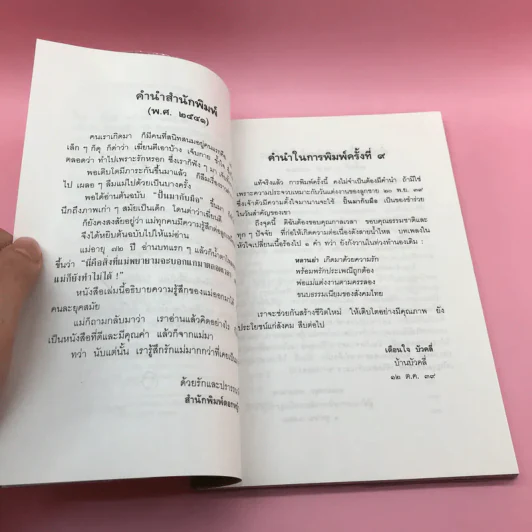 คำนำสำนักพิมพ์
(พ.ศ. ๒๕๔๑)
คนเราเกิดมา ก็มีคนที่สนิทสนมอยู่คนแรก
เล็ก ๆ ก็ดุ ก็ด่าว่า เฆี่ยนตีเอาบ้าง เจ็บกาย
ตลอดว่า ทำไปเพราะรักหรอก ซึ่งเราก็ฟัง ๆ มา
พอเติบโตมีภาระกันขึ้นมาแล้ว ก็ลืมเรื่อง
ไป เผลอ ๆ ลืมแม่ไปด้วยเป็นบางครั้ง
พอได้อ่านต้นฉบับ "ปั้นมากับมือ" ขึ้นมา
นึกถึงภาพเก่า ๆ สมัยเป็นเด็ก โดนด่าว่าเฆี่ยนตี
ก็ยังคงสงสัยอยู่ว่า แม่ทุกคนมีความรู้สึกต่อลูก
จึงได้หยิบต้นฉบับไปให้แม่อ่าน
แม่อายุ ๗๒ ปี อ่านบทแรก ๆ แล้วก็น้ำตา
ขึ้นว่า "นี่คือสิ่งที่แม่พยายามจะบอกแกมาตลอด
แม่ก็ยังทำไม่ได้ !"
หนังสือเล่มนี้อธิบายความรู้สึกของแม่ออกมาได้
คนละยุคสมัย
แม่ก็ถามกลับมาว่า เราอ่านแล้วคิดอย่างไร
เป็นหนังสือที่ดีและมีคุณค่า แล้วก็จากแม่มา
ทว่า นับแต่นั้น เรารู้สึกรักแม่มากกว่าที่เคยเป็น
ด้วยรักและปรารถนา
สำนักพิมพ์ดอกหญ้า
คำนำในการพิมพ์ครั้งที่ ๙
แท้จริงแล้ว การพิมพ์ครั้งนี้ คงไม่จำเป็นต้องมีคำนำ ถ้ามิใช่
เพราะความประจวบเหมาะกับวันแต่งงานของลูกชาย ๒๐ พ.ย. ๓๙
ซึ่งเจ้าตัวมีความตั้งใจมานานจะใช้ ปั้นมากับมือ เป็นของชำร่วย
ในวันสำคัญของเขา
ถึงจุดนี้ ดิฉันต้องขอบคุณกาลเวลา ขอบคุณธรรมชาติและ
ทุก ๆ ปัจจัย ที่ก่อให้เกิดความต่อเนื่องดังสายน้ำไหล บทเพลงใน
หัวใจเปลี่ยนเนื้อร้องไป ๑ คำ ทว่า ยังกังวานในท่วงทำนองเดิม :
หลานย่า เกิดมาด้วยความรัก
พร้อมพรักประเพณีถูกต้อง
พ่อแม่แต่งงานตามครรลอง
ขนบธรรมเนียมของสังคมไทย
เราจะช่วยกันสร้างชีวิตใหม่ ให้เติบโตอย่างมีคุณภาพ ยัง
ประโยชน์แก่สังคม สืบต่อไป
เตือนใจ บัวคลี่
บ้านบัวคลี่
๑๒ ต.ค. ๓๙